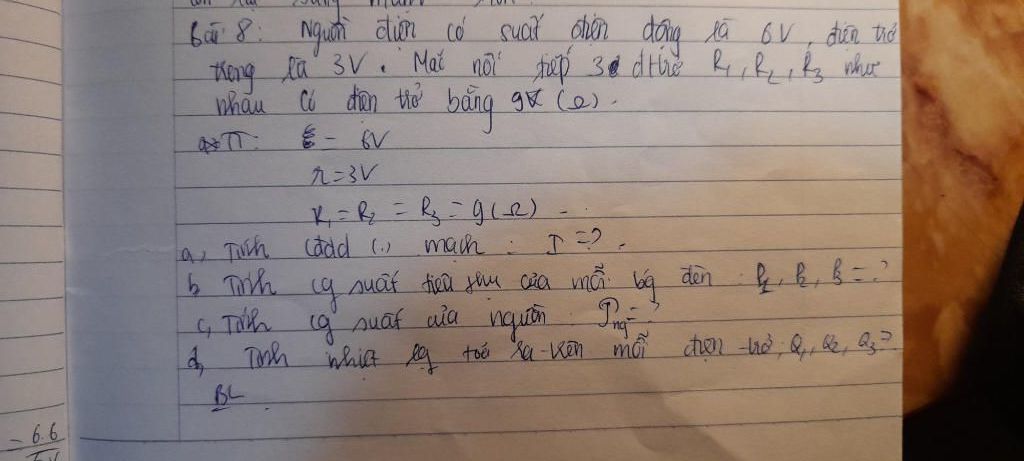 Bài 8: Nguồn điện có suất điện động là 6V, điện trở
trong là 3V. Mắc nối tiếp 3 đ trở R1, R2, R3 như
nhau có điện trở bằng 9 (Ω).
TT: ξ = 6V
r = 3V
R1 = R2 = R3 = 9 (Ω)
a, Tính cđdđ (.) mạch : I = ?.
b, Tính cg suất tiêu thụ của mỗi bg đèn : P1, P2, P3 = ?
c, Tính cg suất của nguồn : Png = ?
d, Tính nhiệt lg toả ra trên mỗi điện trở; Q1, Q2, Q3 ?
BL
= 6.6